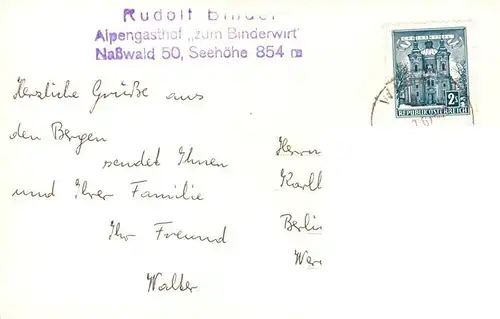 Rudolf Binder
Alpengasthof „zum Binderwirt"
Naßwald 50, Seehöhe 854 m
2.-S
REPUBLIK ÖSTERREICH
Herzliche Grüße aus
den Bergen
sendet Ihnen
und Ihrer Familie
Ihr Freund
Walter
Herrn
Karl
Berlin